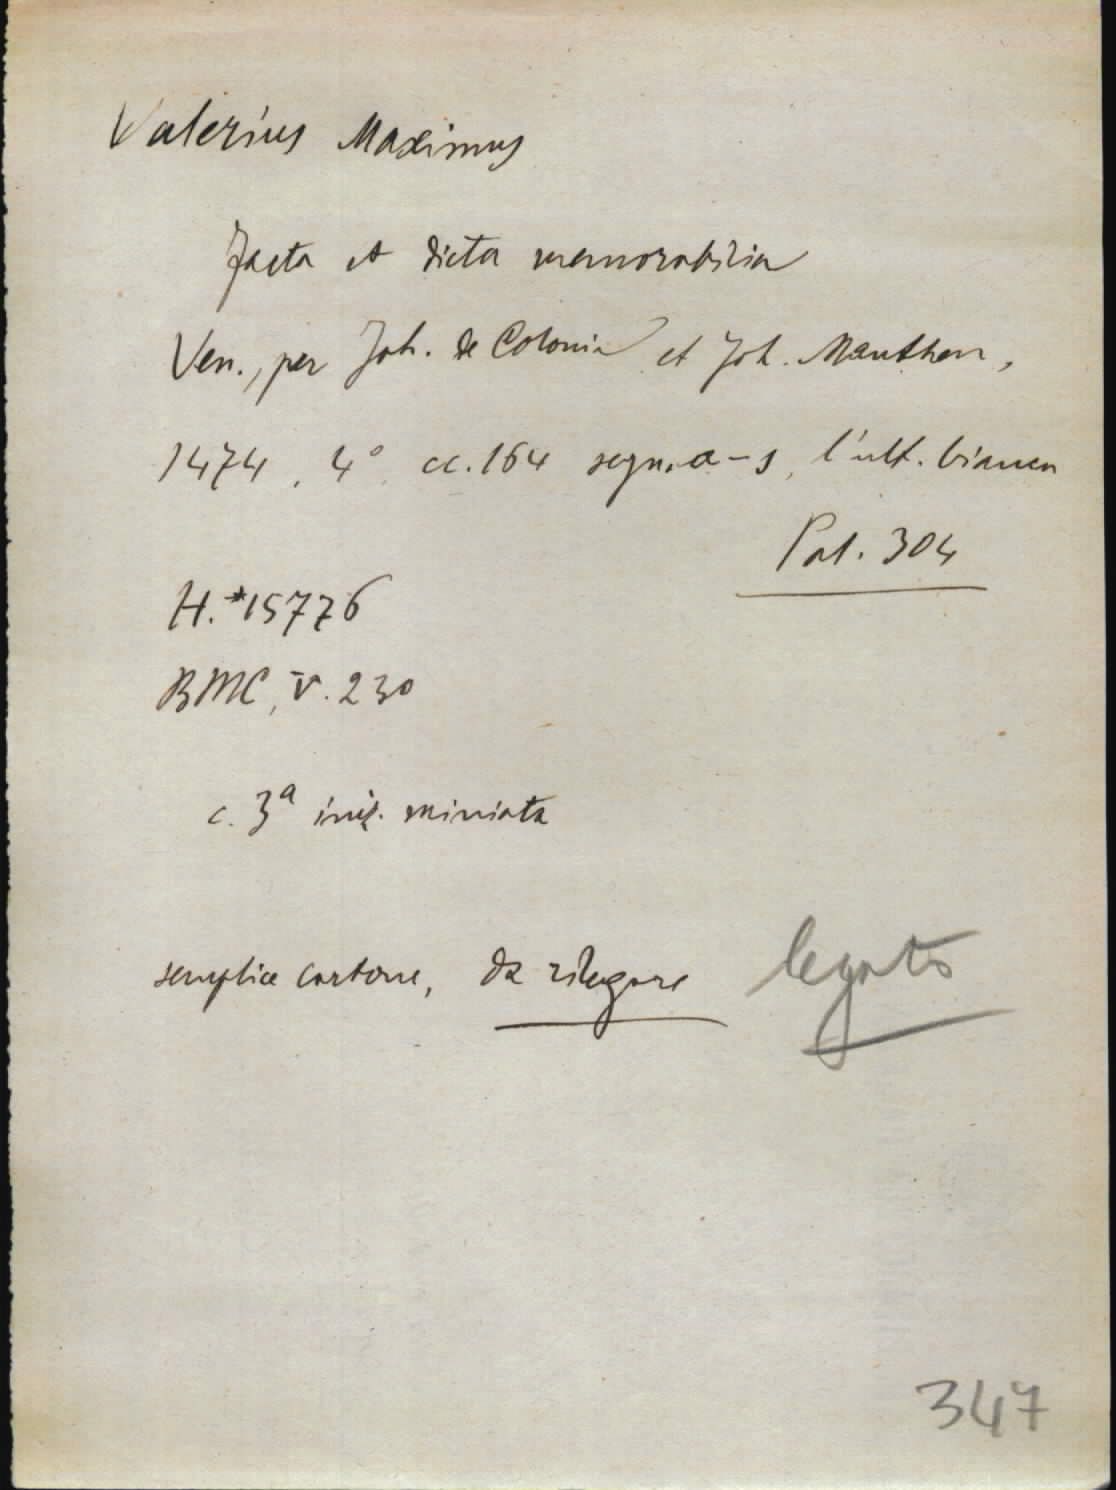 Valerius Maximus
Facta et dicta memorabilia
Ven., per Joh. de Colonia et Joh. Manthen,
1474, 4° cc. 164 segn. a-s, l'ult. bianca
Pal. 304
H. *15776
BMC, V. 230
c. 3ª iniz. miniata
semplice cartone, da rilegare legato
347